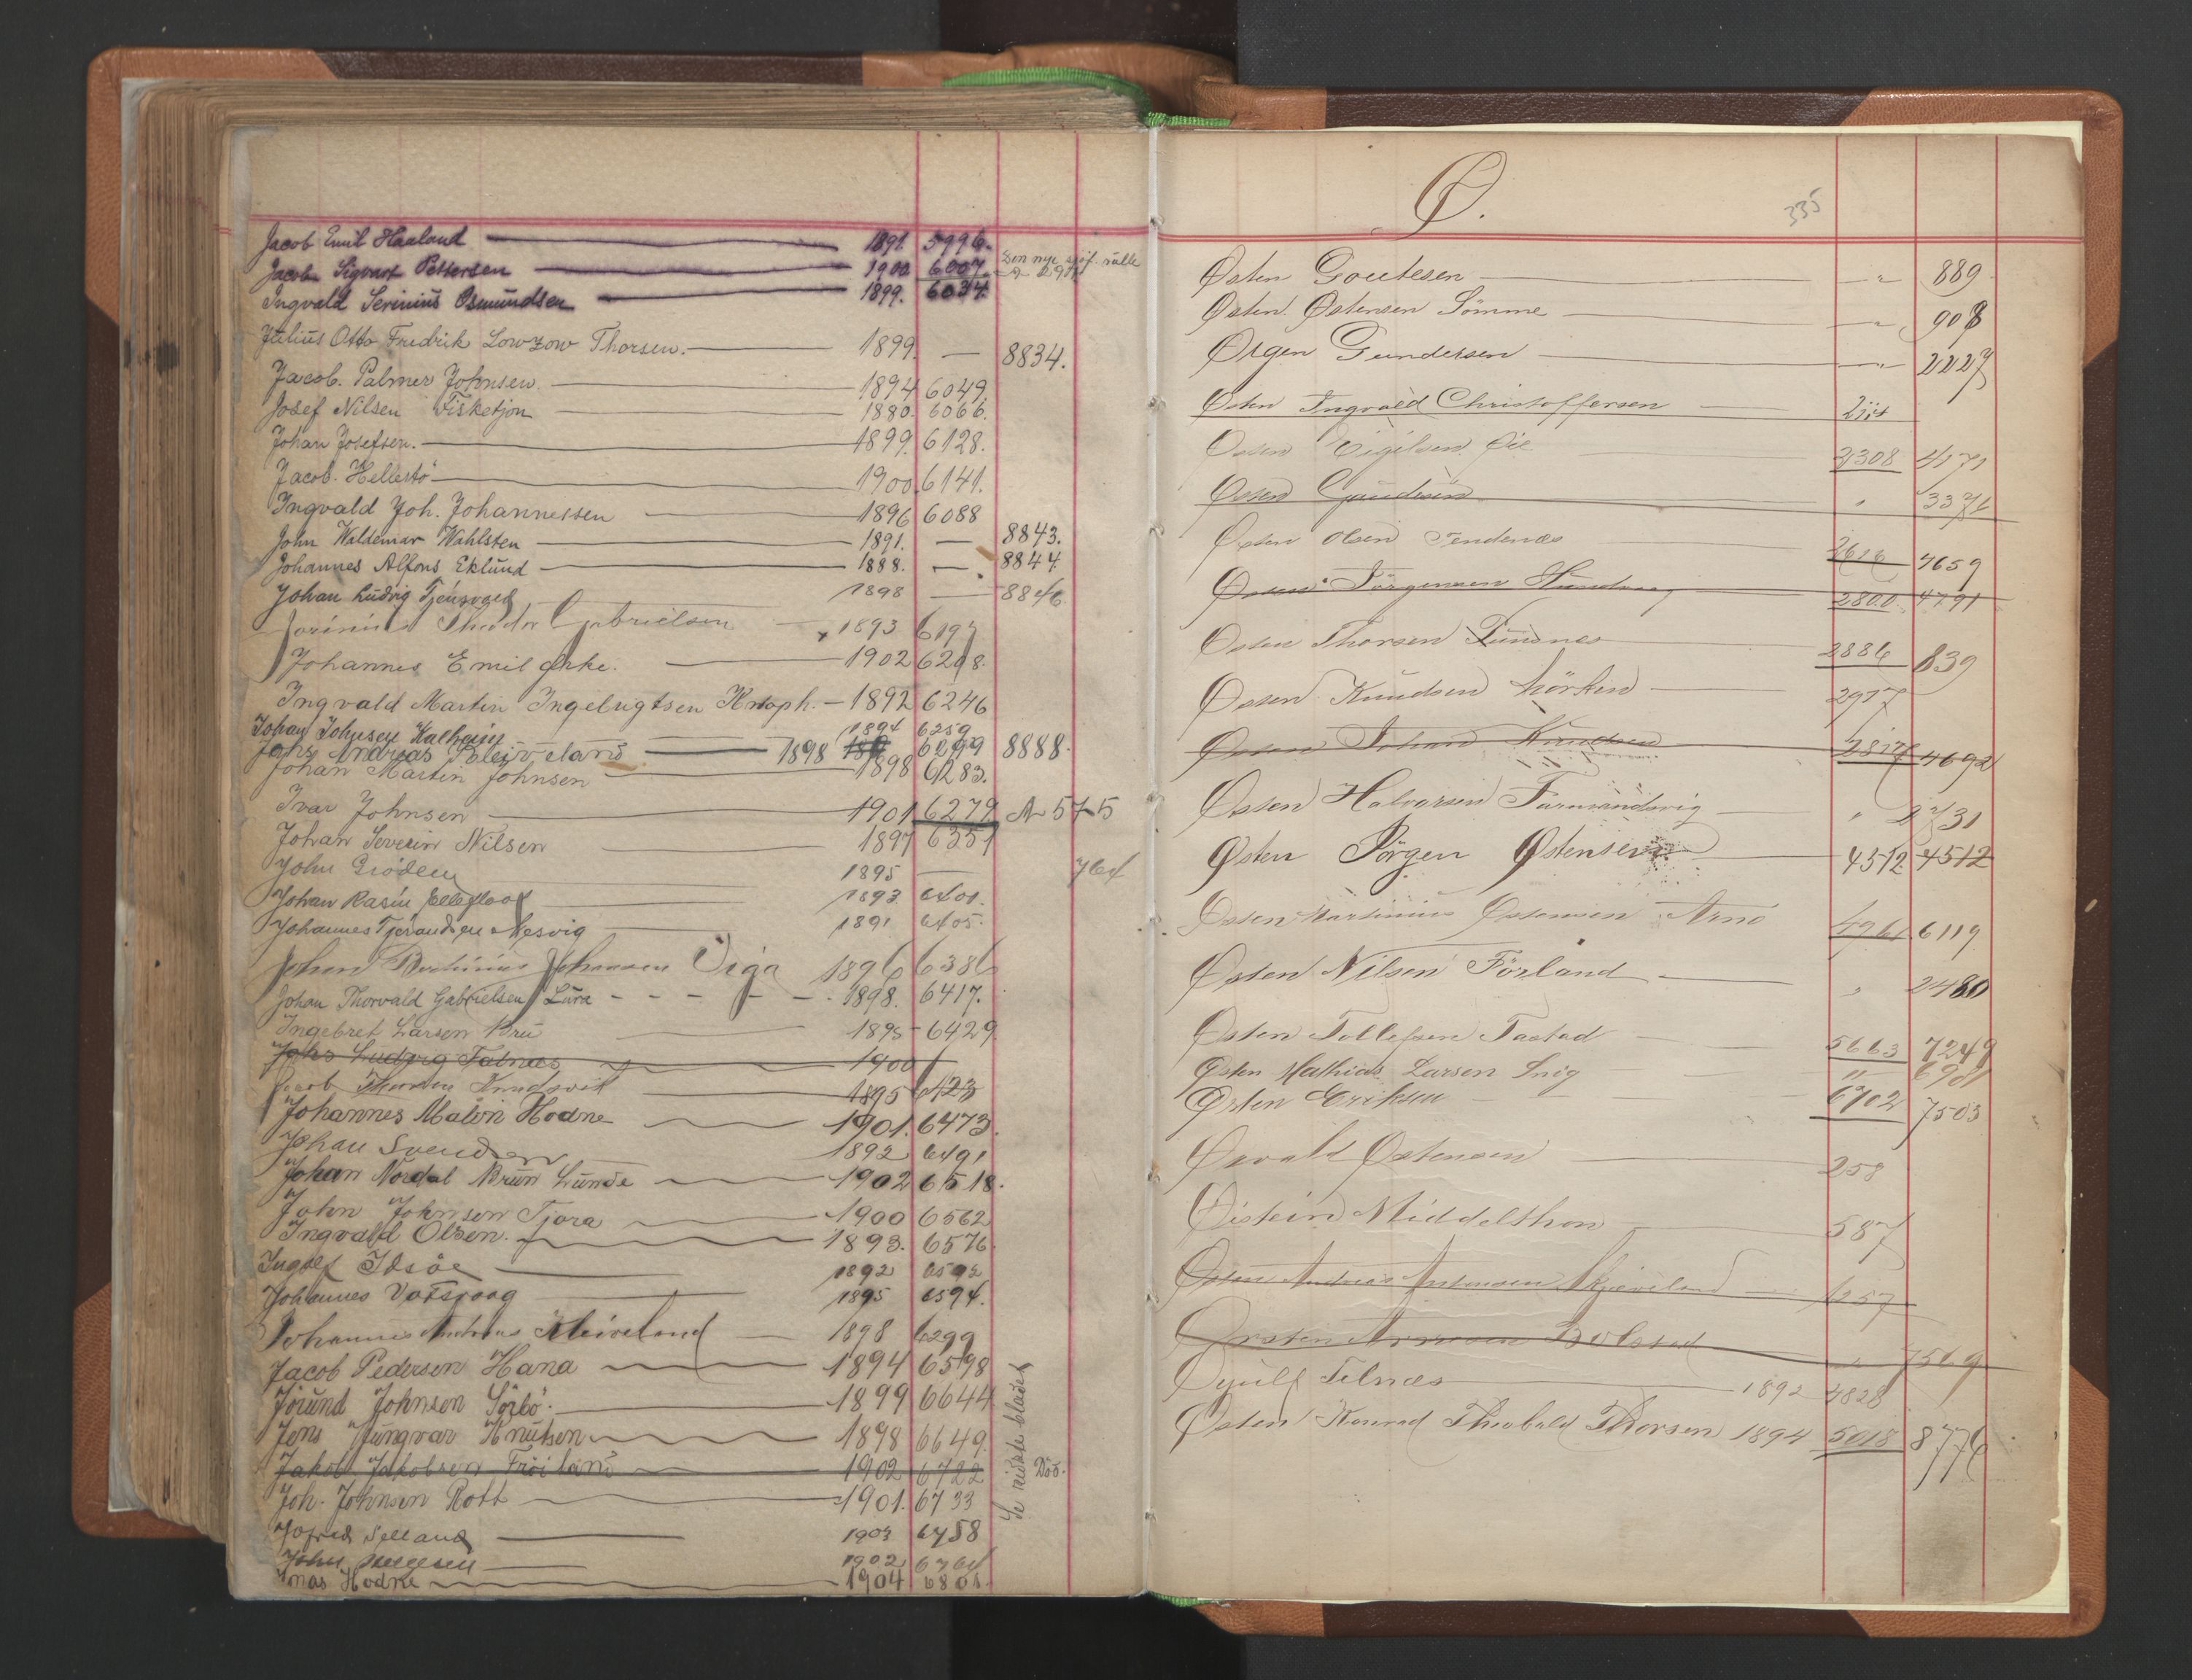 Jacob Emil Haaland 1891. 5996.
Jacob Sigvart Pettersen 1900 6007. Den nye sjöf. rulle
Ingvald Serinius Osmundsen 1899. 6034.
Julius Otto Fredrik Lowzow Thorsen. 1899. — 8834.
Jacob. Palmer Johnsen. 1894 6049.
Josef Nilsen Fisketjon 1880. 6066.
Johan Josefsen. 1899. 6128.
Jacob. Hellestö 1900 6141.
Ingvald Joh. Johannessen 1896 6088
John Waldemar Wahlsten 1891. — 8843.
Johannes Alfons Eklund 1888. — 8844
Johan Ludvig Tjensvold 1898 — 8846
Theodor Gabrielsen 1893
Johannes Emil 1902 6208.
Ingvald Martin Ingebrigtsen Knoph. 1892 6246
Johan Johnsen Kalheim 1894 6259
Johs Andreas Kleiveland 1898 6299 8888.
Johan Martin Johnsen 1898 6283.
Ivar Johnsen 1901 6279 A 575
Johan Severin Nilsen 1897 6351
John Gröden 1895 — 764
Johan Rasin 1893 6401.
Johannes Tjerandsen Nesvig 1891 6405.
Johan Johansen Viga 1896 6386
Johan Thorvald Gabrielsen Lura 1898. 6417.
Ingebret Larsen Bru 1895 6429
Johs Ludvig Falnæs 1900
Jacob Knudsvik 1895 6423
Johannes Malvin Hodne 1901. 6473.
Johan Svendsen 1892 6491
Johan Nordal Brun Lunde 1902 6518.
John Johnsen Tjora 1900 6562
Ingvald Olsen. 1893. 6576.
Ingolf Idsöe 1892 6592
Johannes Vatsvaag 1895 6594.
Johannes Andreas Kleiveland 1898 6299
Jacob Pedersen Hana 1894 6598
Jörund Johnsen Sörbö. 1899 6644
Jens Jungvar Knutsen 1898 6649.
Jakob Jakobsen Fröiland 1902 6722 Död.
Joh. Johnsen Rott 1901. 6733
Jofred Selland 1903 6758
John 1902 6764
Jonas Hodne 1904 6808.
Se sidste bladet
Ø.
335
Østen Goutesen " 889
Østen Østensen Sömme " 908
Ørgen Gundersen " 2227
Osten Ingvald Christoffersen
Østen Eigelsen Øie 3308 4171
Østen Gundersen "
Østen Olsen Tendenæs 2616 4659
Østen Jörgensen Hundvaag 2800 4791
Østen Thorsen Tunsnes 2886 839
Østen Knudsen 2917
Østen Johan Knudsen 4692
Østen Halvorsen "
Østen Jörgen Østensen 4512 4512
Østen Martinius Østensen Arnö 4961 6119
Østen Nilsen Förland " 2480
Østen Tollefsen Tastad 5663 7249
Østen Mathias Larsen Snig "
Østen Eriksen 6702 7503
Osvald Østensen 258
Øistein Middelthon 587
Østen Andreas Antonsen
Orsten Bolstad " 7569
Øyulf Felnæs 1892 4828
Østen Konrad Theobald Thorsen 1894 5018 8776